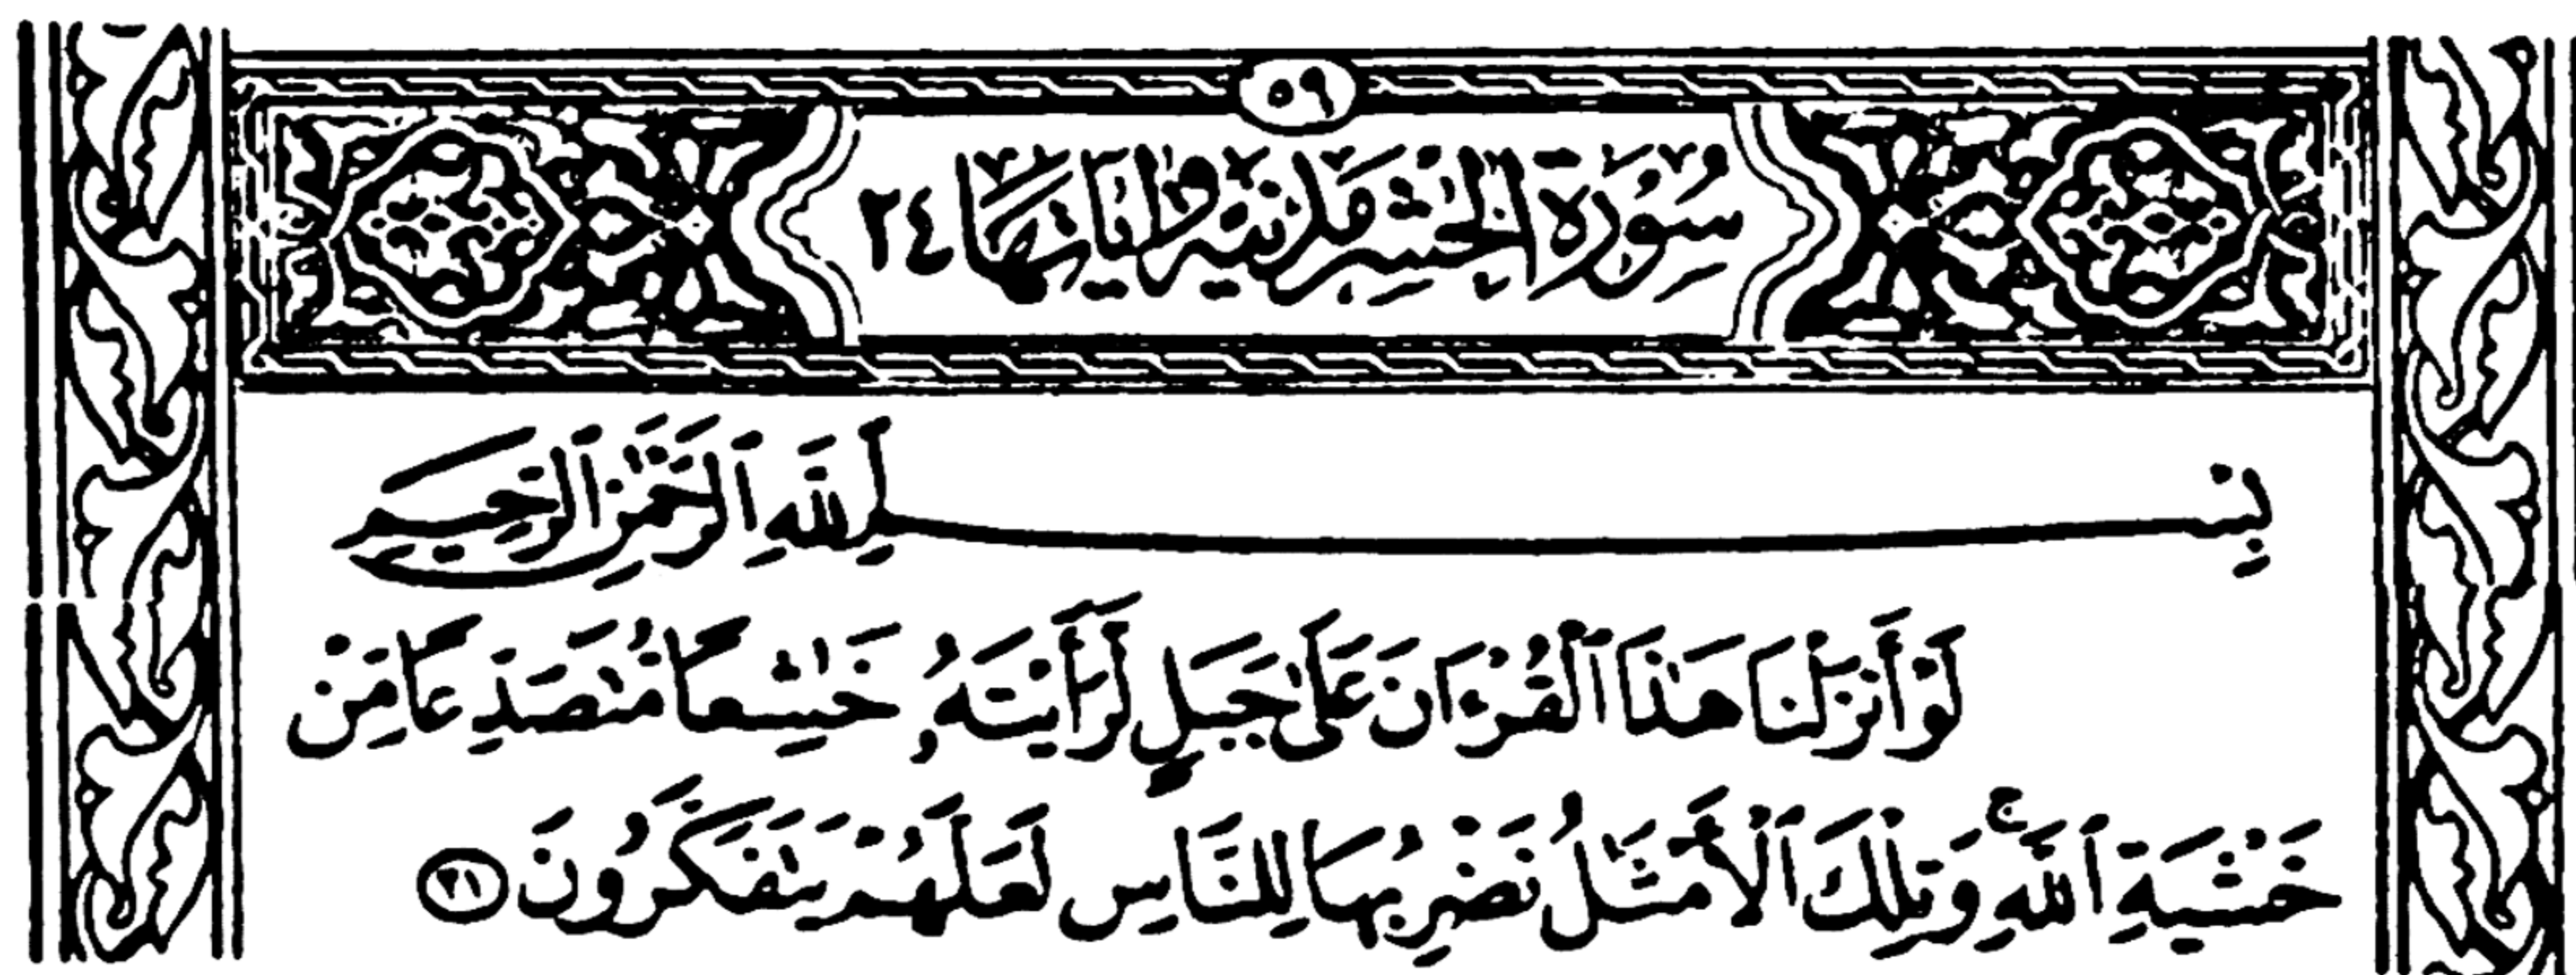 ٥٩
سُورَةُ الحَشْرِ مَدَنِيَّة وَآيَاتُهَا ٢٤
بِسْمِ ٱللَّهِ ٱلرَّحْمَٰنِ ٱلرَّحِيمِ
لَوْ أَنزَلْنَا هَٰذَا ٱلْقُرْءَانَ عَلَىٰ جَبَلٍ لَّرَأَيْتَهُۥ خَٰشِعًا مُّتَصَدِّعًا مِّنْ
خَشْيَةِ ٱللَّهِ ۚ وَتِلْكَ ٱلْأَمْثَٰلُ نَضْرِبُهَا لِلنَّاسِ لَعَلَّهُمْ يَتَفَكَّرُونَ ٢١